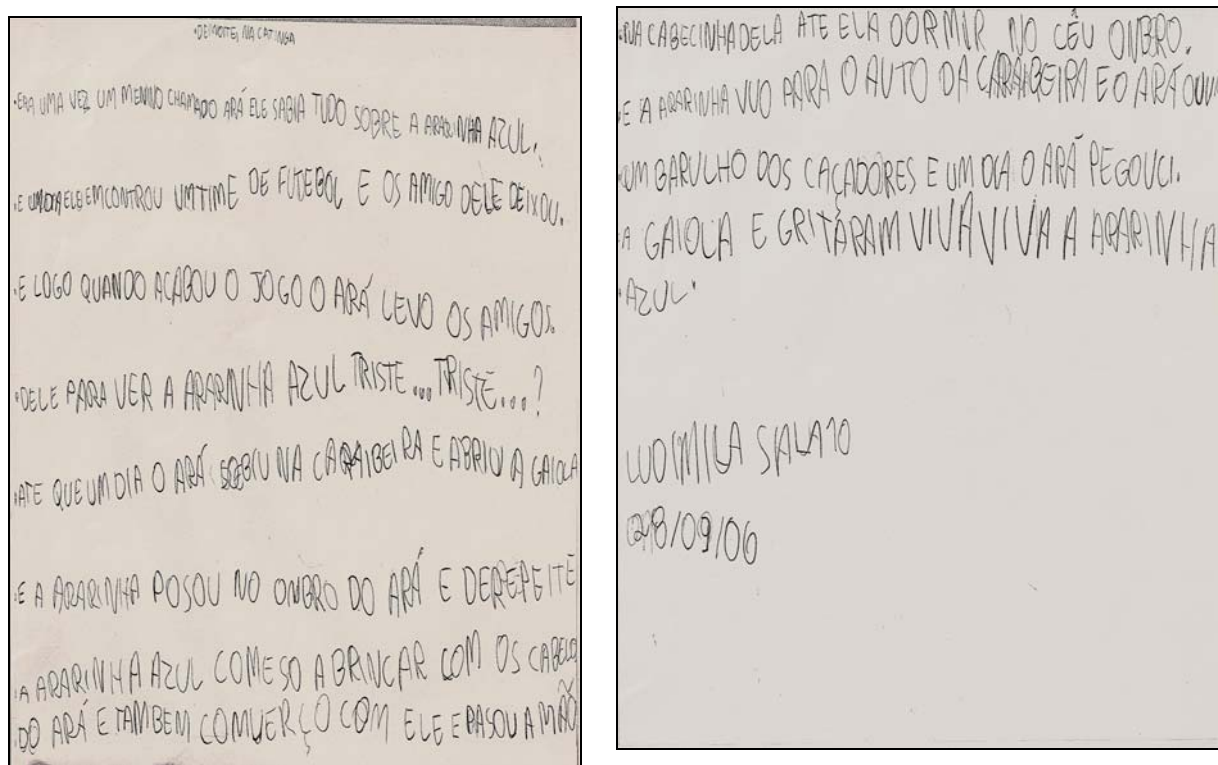 •DE NOITE, NA CATINGA
•ERA UMA VEZ UM MENINO CHAMADO ARÁ ELE SABIA TUDO SOBRE A ARARINHA AZUL.
•E UM DIA ELE EMCONTROU UM TIME DE FUTEBOL E OS AMIGO DELE DEIXOU.
•E LOGO QUANDO ACABOU O JOGO O ARÁ LEVO OS AMIGOS.
•DELE PARA VER A ARARINHA AZUL TRISTE... TRISTE...?
•ATE QUE UM DIA O ARÁ SOBIU NA CARAIBEIRA E ABRIU A GAIOLA
•E A ARARINHA POSOU NO ONBRO DO ARÁ E DEREPEITE
•A ARARINHA AZUL COMESO A BRINCAR COM OS CABELO
•DO ARÁ E TAMBEM COMVERÇO COM ELE E PASOU A MÃO
•NA CABECINHA DELA ATE ELA DORMIR NO CÉU ONBRO.
•E A ARARINHA VUO PARA O AUTO DA CARAIBEIRA E O ARÁ OUVI
•UM BARULHO DOS CAÇADORES E UM DIA O ARÁ PEGOUCI.
•A GAIOLA E GRITÁRAM VIVA VIVA A ARARINHA
•AZUL•
LUDIMILA SALATO
28/09/06